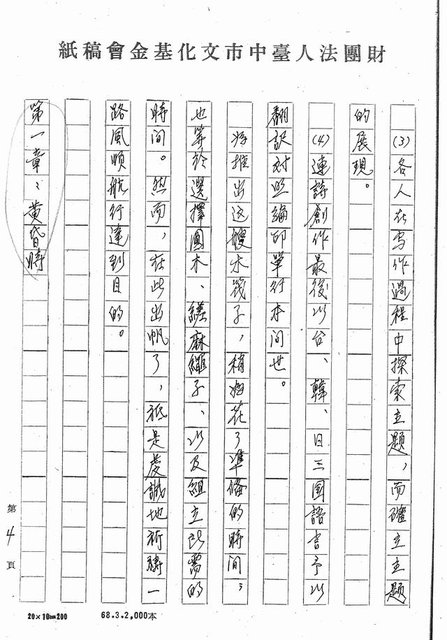 財團法人臺中市文化基金會稿紙
(3)各人在寫作過程中探索立題，而確立立題
的展現。
(4)連詩創作最後以台、韓、日三國語言予以
翻訳対照編印單行本问世。
將推出这艘木筏子，稍〻花了準俻的時间；
也等於選擇圓木、縒麻繩子、以及組立所需的
時间。然而，在此出帆了，祇是虔誠地祈禱一
路風順航行達到目的。
第一章：黃昏時
第4頁
20×10=200
68.3.2,000本